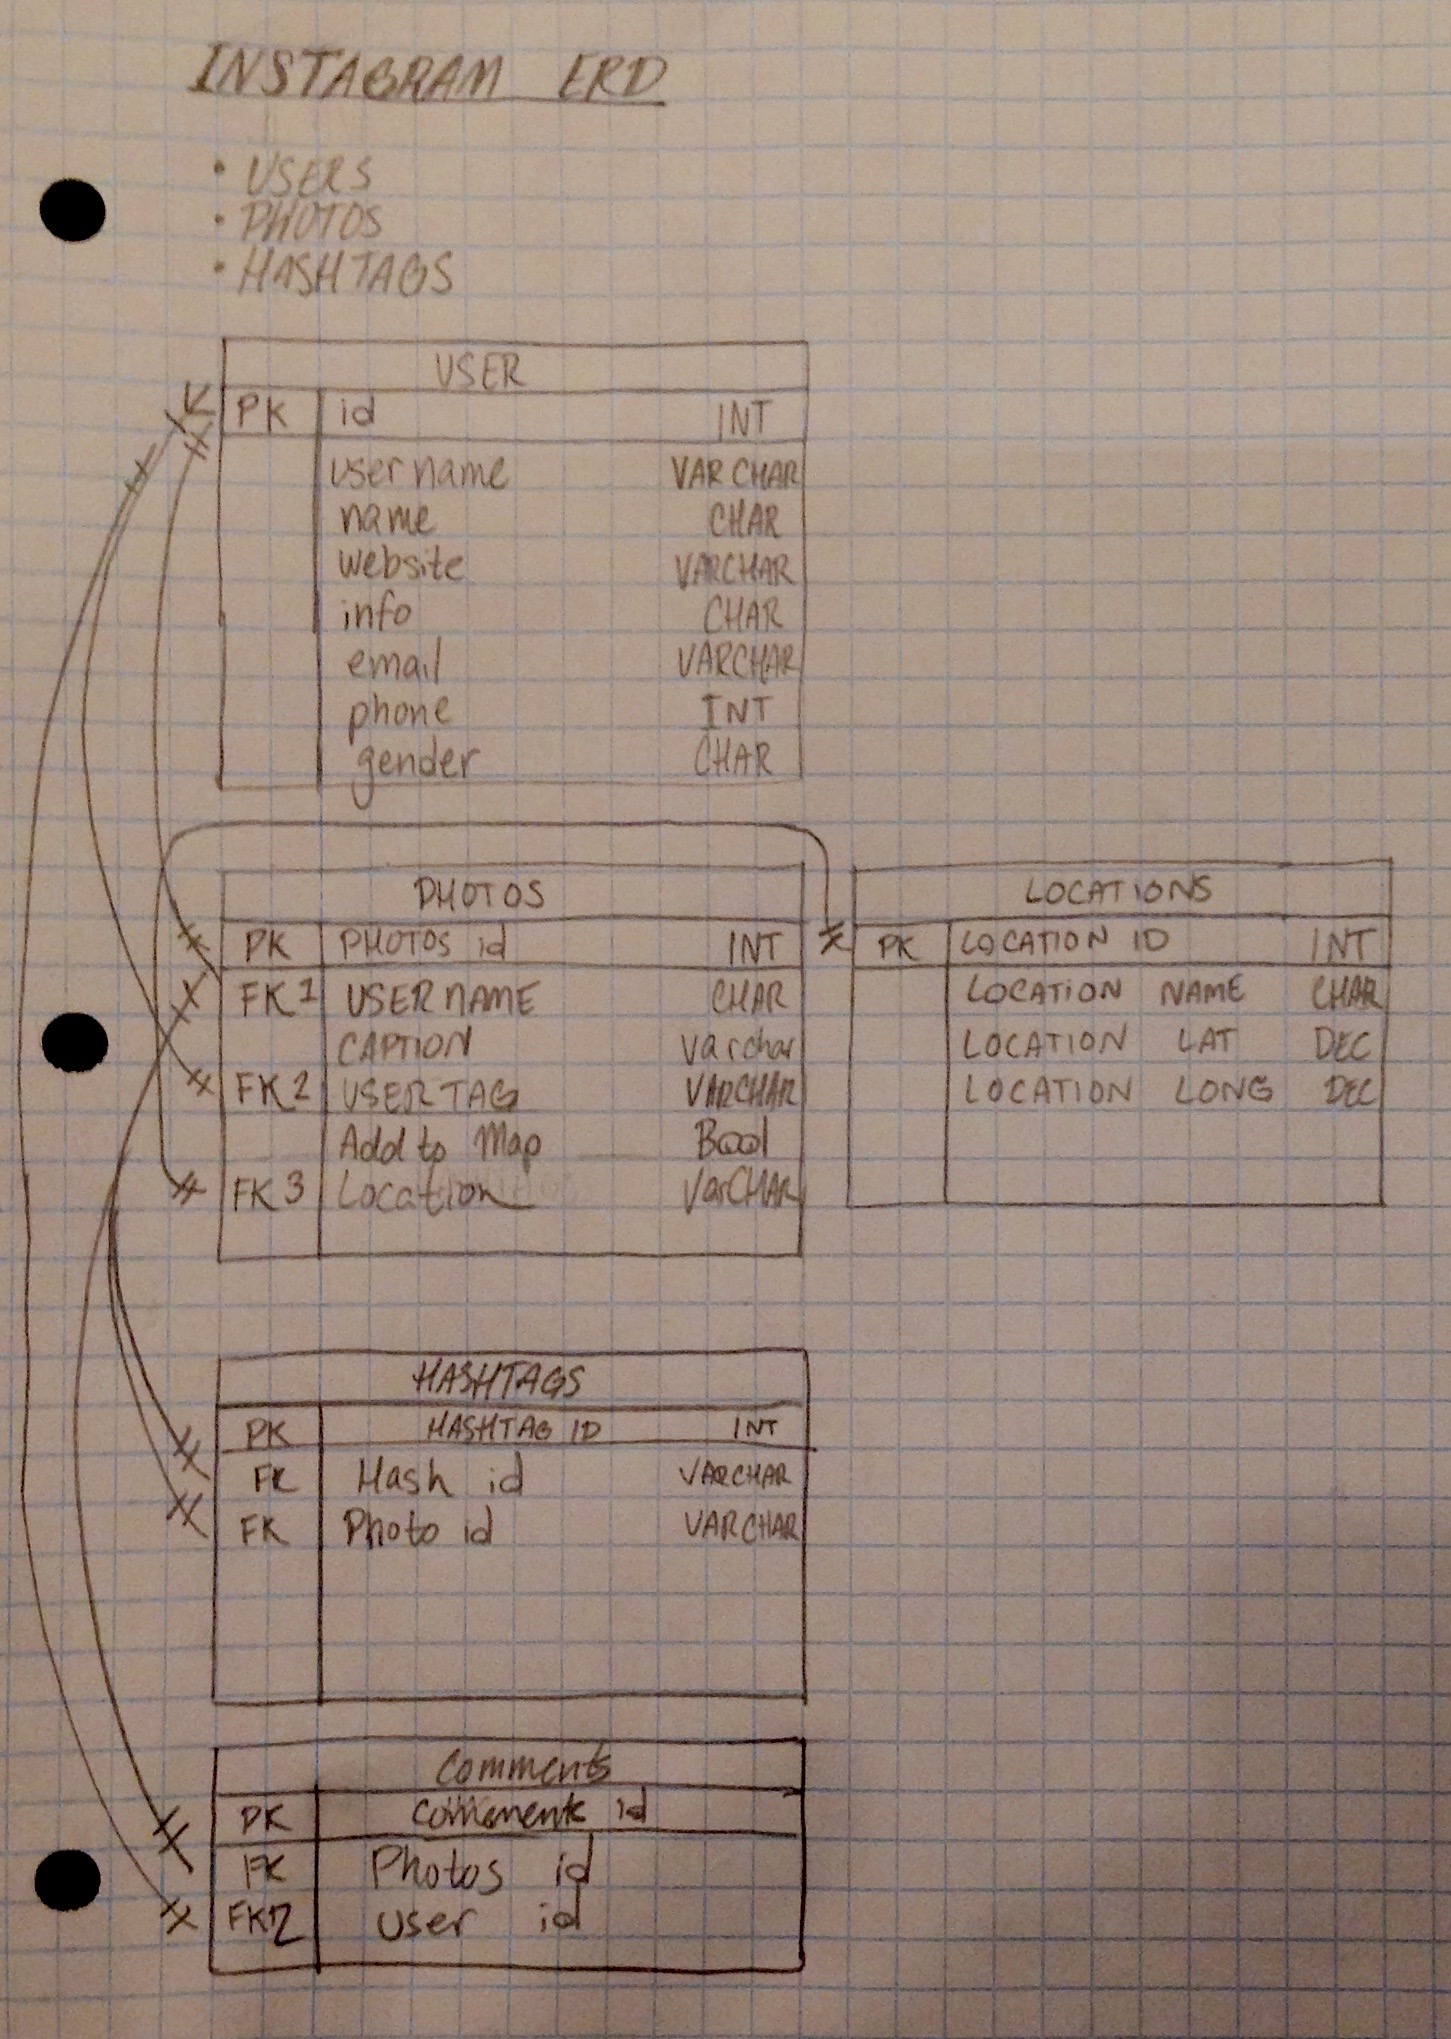 INSTAGRAM ERD
• USERS
• PHOTOS
• HASHTAGS
USER
PK id INT
username VARCHAR
name CHAR
website VARCHAR
info CHAR
email VARCHAR
phone INT
gender CHAR
PHOTOS
PK PHOTOS id INT
FK1 USERNAME CHAR
CAPTION varchar
FK2 USERTAG VARCHAR
Add to Map Bool
FK3 Location VarCHAR
LOCATIONS
PK LOCATION ID INT
LOCATION NAME CHAR
LOCATION LAT DEC
LOCATION LONG DEC
HASHTAGS
PK HASHTAG ID INT
FK Hash id VARCHAR
FK Photo id VARCHAR
Comments
PK id
FK Photos id
FK2 user id